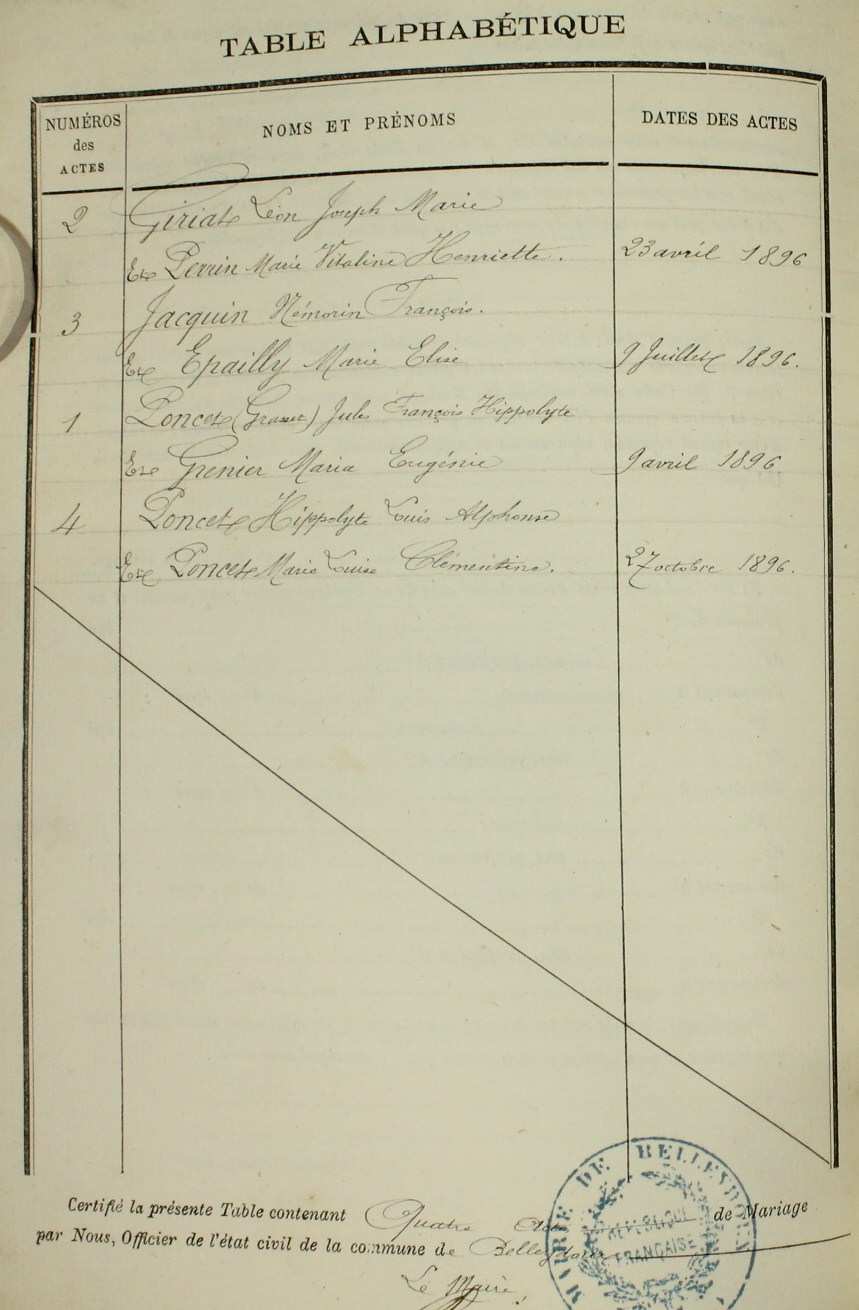 TABLE ALPHABÉTIQUE
NUMÉROS des ACTES NOMS ET PRÉNOMS DATES DES ACTES
2 Giriat Léon Joseph Marie
Et Perrin Marie Vitaline Henriette. 23 avril 1896
3 Jacquin Némorin François.
Et Epailly Marie Elise 9 Juillet 1896.
1 Poncet (Grasset) Jules François Hippolyte
Et Grenier Maria Eugénie 9 avril 1896
4 Poncet Hippolyte Louis Alphonse
Et Poncet Marie Louise Clémentine. 27 octobre 1896.
Certifié la présente Table contenant Quatre Actes de Mariage
par Nous, Officier de l'état civil de la commune de Belleydoux
Le Maire,
MAIRIE DE BELLEYDOUX
RÉPUBLIQUE
FRANÇAISE